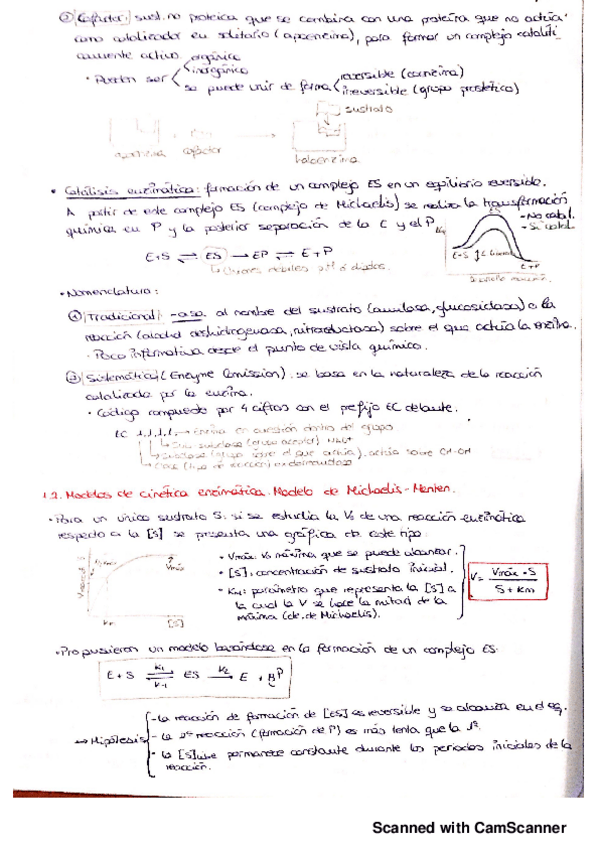 ② Cofactor: sust. no proteica que se combina con una proteína que no actúa
como catalizador en solitario (apoenzima), para formar un complejo catalíti-
camente activo.
· Pueden ser orgánico
inorgánico
se puede unir de forma reversible (coenzima)
irreversible (grupo prostético)
sustrato
apoenzima cofactor
holoenzima
· Catálisis enzimática: formación de un complejo ES en un equilibrio reversible.
A partir de este complejo ES (complejo de Michaelis) se realiza la transformación
química en P y la posterior separación de la E y el P.
- No catal.
- Sí catal.
E+S ⇌ ES → EP ⇌ E+P
E+S
E+P
· Nomenclatura:
① Tradicional: -asa al nombre del sustrato (amilasa, glucosidasa) o la
reacción (alcohol deshidrogenasa, nitroreductasa) sobre el que actúa la enzima.
· Poco informativa desde el punto de vista químico.
② Sistemática (Enzyme Comission). se basa en la naturaleza de la reacción
catalizada por la enzima.
· Código compuesto por 4 cifras con el prefijo EC delante.
EC 1.1.1.1. → Enzima en cuestión dentro del grupo
Sub subclase (grupo aceptor) NAD+
Subclase (grupo sobre el que actúa), actúa sobre CH-OH
Clase (tipo de reacción) oxidorreductasa
1.2. Modelos de cinética enzimática. Modelo de Michaelis-Menten.
· Para un único sustrato S: si se estudia la V₀ de una reacción enzimática
respecto a la [S] se presenta una gráfica de este tipo:
· Vmáx: V₀ máxima que se puede alcanzar.
· [S]: concentración de sustrato inicial.
· Km: parámetro que representa la [S] a
la cual la V se hace la mitad de la
máxima (cte. de Michaelis).
V = Vmáx · S / S + Km
Vmáx
Km
[S]
· Propusieron un modelo basándose en la formación de un complejo ES:
E + S ⇌ ES → E + P
K₁ K₂
K₋₁
→ Hipótesis
- La reacción de formación de [ES] es reversible y se alcanza en el eq.
- la 2ª reacción (formación de P) es más lenta que la 1ª.
· la [S] libre permanece constante durante los periodos iniciales de la
reacción.
Scanned with CamScanner